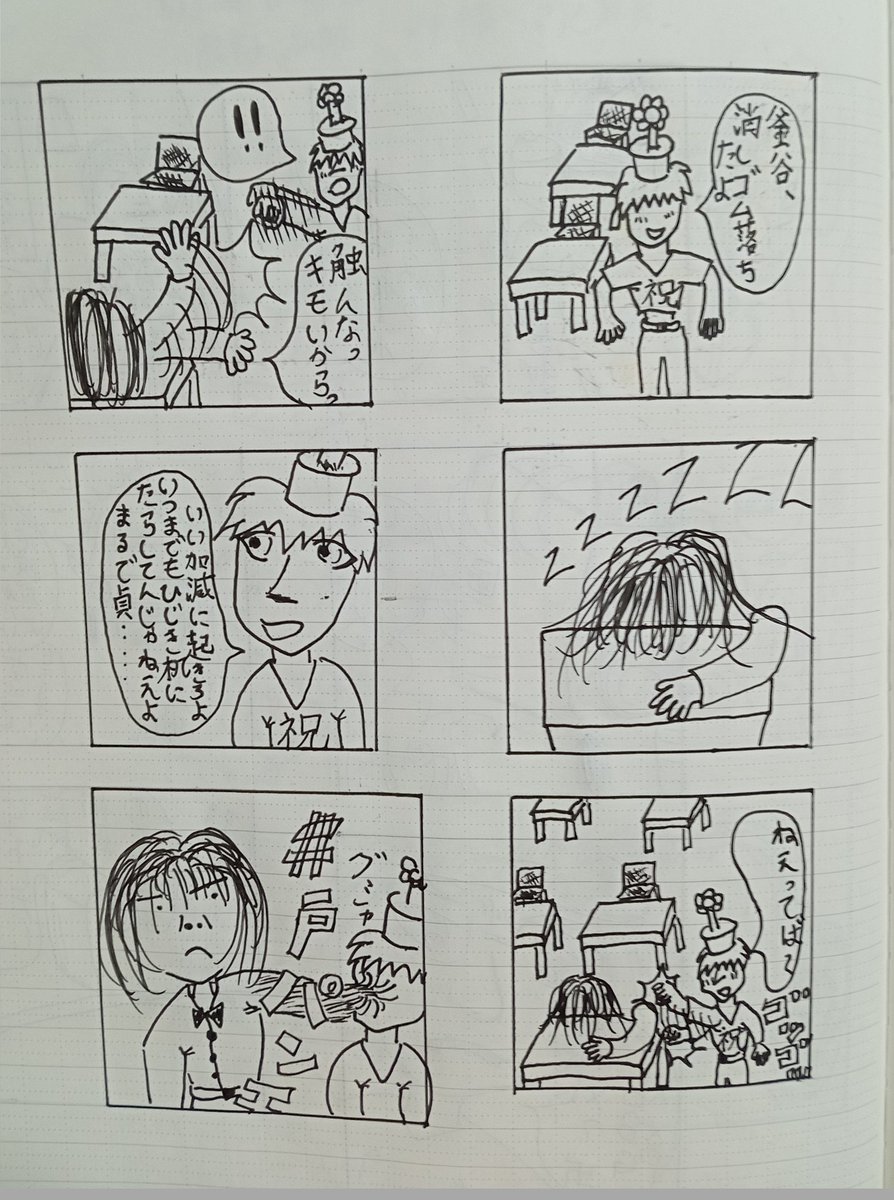 釜谷、
消しゴム落ち
たよ
祝
zzzzzzz
ねえってば〜
祝
ゴッ
ゴッ
!!
触んなっ
キモいからっ
いい加減に起きろよ
いつまでもひじき机に
たらしてんじゃねえよ
まるで貞‥‥‥
祝
井戸
グシャ